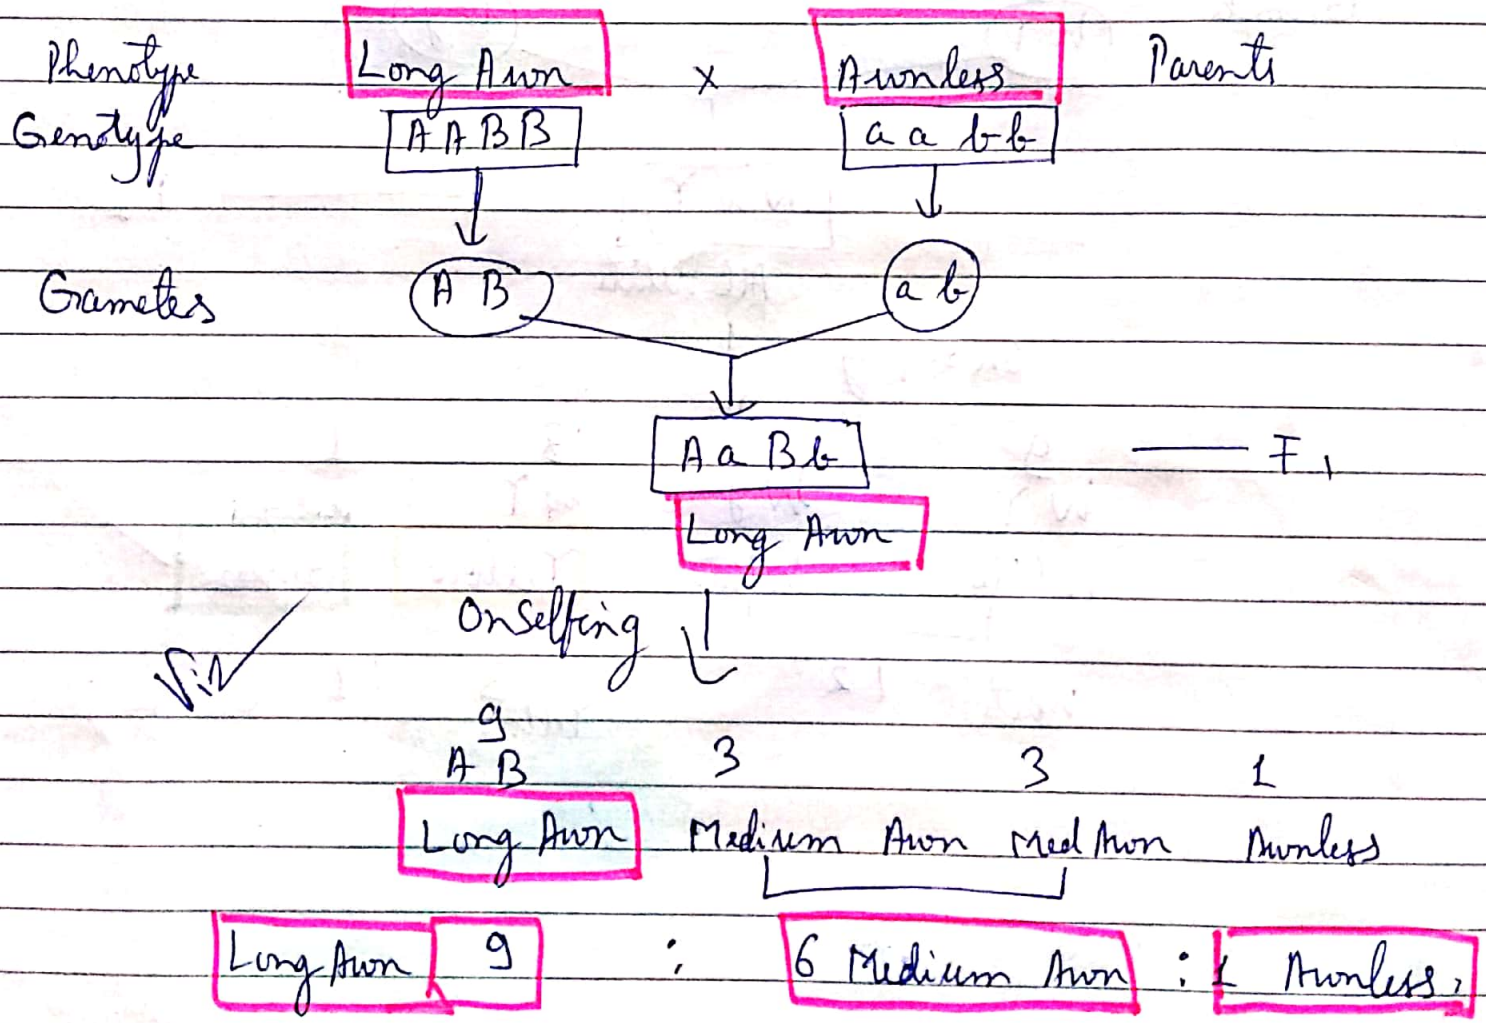 Phenotype Long Awn x Awnless Parents
Genotype A A B B a a b b
Gametes A B a b
A a B b F1
Long Awn
On Selfing
9 3 3 1
A B
Long Awn Medium Awn Med Awn Awnless
Long Awn 9 : 6 Medium Awn : 1 Awnless,